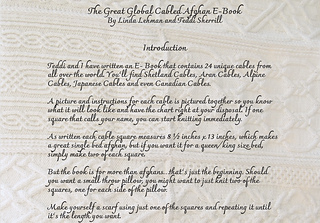 The Great Global Cabled Afghan E-Book
By Linda Lehman and Teddi Sherrill
Introduction
Teddi and I have written an E- Book that contains 24 unique cables from
all over the world. You'll find Shetland Cables, Aran Cables, Alpine
Cables, Japanese Cables and even Canadian Cables.
A picture and instructions for each cable is pictured together so you know
what it will look like and have the chart right at your disposal. If one
square that calls your name, you can start knitting immediately.
As written each cable square measures 8 ½ inches x 13 inches, which makes
a great single bed afghan, but if you want it for a queen/ king size bed,
simply make two of each square.
But the book is for more than afghans...that's just the beginning. Should
you want a small throw pillow, you might want to just knit two of the
squares, one for each side of the pillow.
Make yourself a scarf using just one of the squares and repeating it until
it's the length you want.